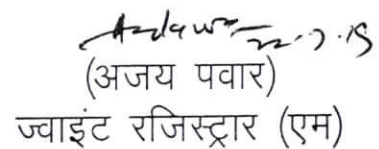 22-7-15
(अजय पवार)
ज्वाइंट रजिस्ट्रार (एम)